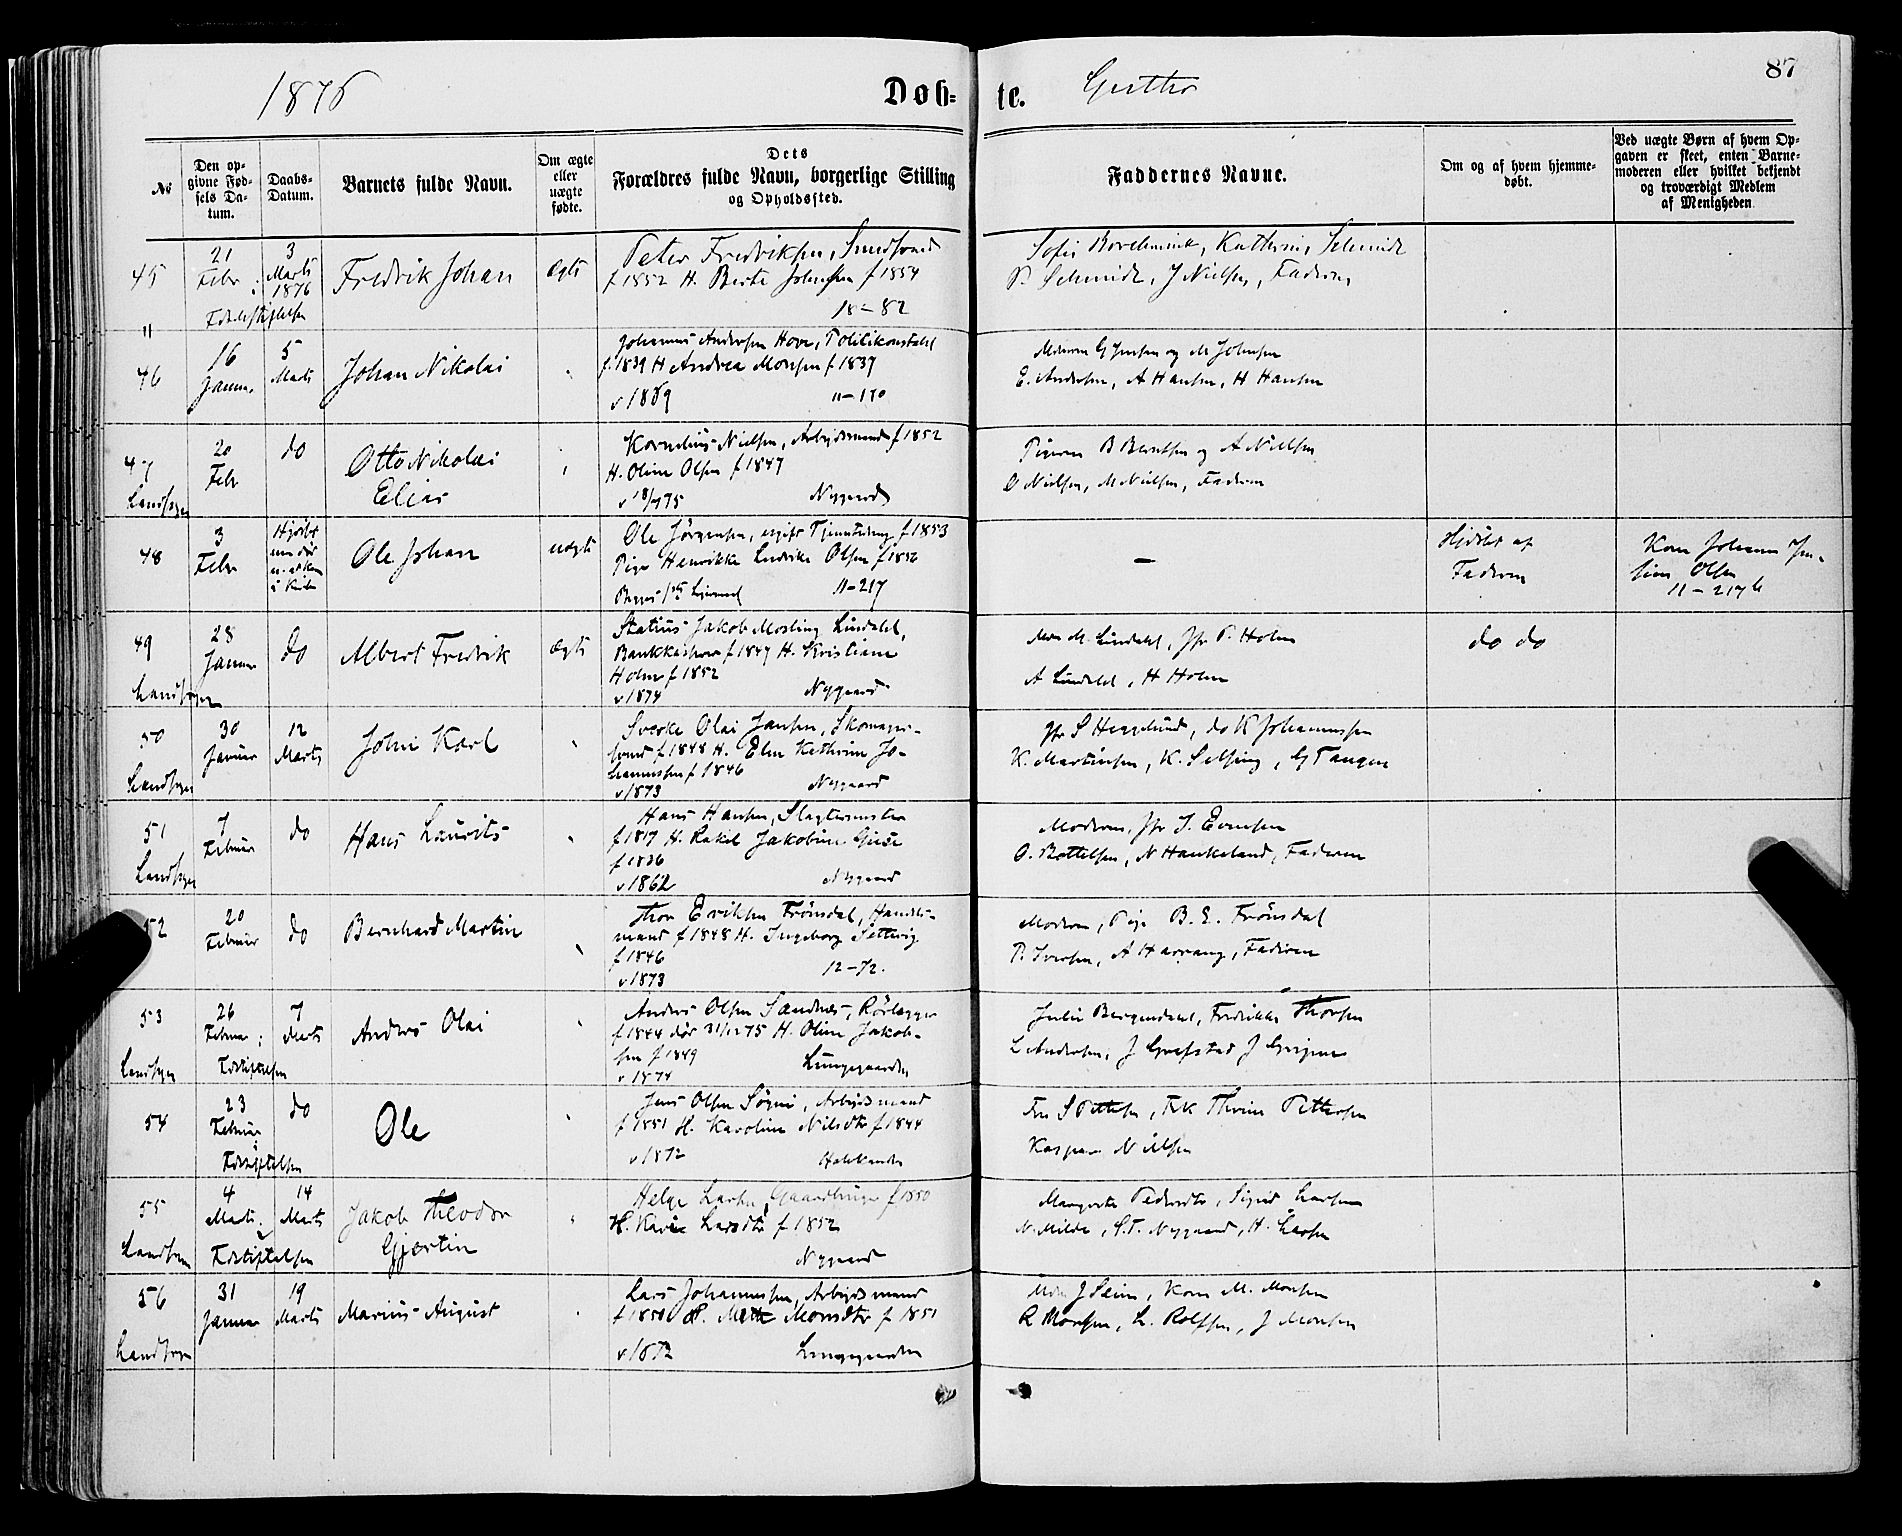 1876 Døb= te. Gutter 87
No
Den opgivne Fødsels Datum.
Daabs-Datum.
Barnets fulde Navn.
Om ægte eller uægte fødte.
Dets Forældres fulde Navn, borgerlige Stilling og Opholdssted.
Faddernes Navne.
Om og af hvem hjemmedøbt.
Ved uægte Børn af hvem Opgaven er skeet, enten Barnemoderen eller hvilket bekjendt og troværdigt Medlem af Menigheden
45 21 Febr: 3 Marts 1876 Fredrik Johan Ægte Peter Fredriksen,
f 1852 H. Berte Johnsen f 1854
18-82
P. Schmidt, J Nielsen, Faderen
46 16 Januar 5 Marts Johan Nikolai Johannes Andersen Hove, Politikonstabel
f. 1839 H Andrea Monsen f 1837
v 1869 11-170
Moderen G Jensen og M Johnsen
E. Andersen, A Hansen, H Hansen
47 20 Febr do Otto Nikolai Elias Kornelius Nielsen, Arbejdsmand f 1852
H. Oline Olsen f 1847
Nygaard
Landsogn
B Berntsen og A Nielsen
O Nielsen, M Nielsen, Faderen
48 3 Febr Ole Johan uægte Ole Jørgensen, ugift f 1853
Pige Henrikke Ludvikke Olsen
11-217
—
Hjdøbt af Faderen
Kone Johanne
Olsen
11-217 b
49 28 Januar do Albert Fredrik Ægte Statius Jakob Mosling Lindahl,
Bankkasserer f 1847 H. Kristiane
Holm f 1852
v 1874 Nygaard
Landsogn
M. Lindahl, Jfr P. Holm
A Lindahl, H Holm
do do
50 30 Januar 12 Marts John Karl Sverke Olai Jansen, Skomager-
svend f 1848 H. Elen Kathrine Jo-
hannessen f 1846
v 1873 Nygaard
Landsogn
Jfr S Hegglund, do K Johannessen
K. Martinsen, K. Selsing, G Tangen
51 7 Februar do Hans Laurits Hans Hansen, Slagtermester
f 1817 H. Rakel Jakobine
f 1826
v 1862 Nygaard
Landsogn
Moderen, Jfr S. Evensen
O. Bottelsen, N Haukeland, Faderen
52 20 Februar do Bernhard Martin Thor Eriksen Frönsdal, Handels-
mand f 1848 H. Ingeborg Settevig
f 1846
v 1873 12-72.
Moderen, Pige B. E. Frönsdal
P. Iversen, A Harrang, Faderen
53 26 Februar: 7 Marts Anders Olai Anders Olsen Sandnes, Rörlægger
f 1844 dør 31/12 75 H. Oline Jakob-
sen f 1849
v 1874 Lungegaarden
Landsogn Fdstiftelsen
Julie Bergendahl, Fredrikke Thorsen
L Andersen, J Grefstad J
54 23 Februar do Ole Jens Olsen Søgni, Arbejdsmand
f 1851 H. Karoline Nilsdtr f 1844
v 1872
Fdstiftelsen
Thrine Pettersen
Kaspar Nielsen
55 4 Marts 14 Marts Jakob Theodor Gjertin Helge Larsen, Gaardbruger f 1850
H. Kari Larsdtr f 1852
Nygaard
Landsogn Fdstiftelsen
Margrete Pedersdtr, Sigrid Larsen
N. Milde, S. T. Nygaard, H. Larsen
56 31 Januar 19 Marts Marius August Lars Johannessen, Arbejdsmand
f 1850 H. Mette Monsdtr f 1851
v 1872 Lungegaarden
Landsogn
J Seim, Kone M. Monsen
R Monsen, L. Rolfsen, J Monsen